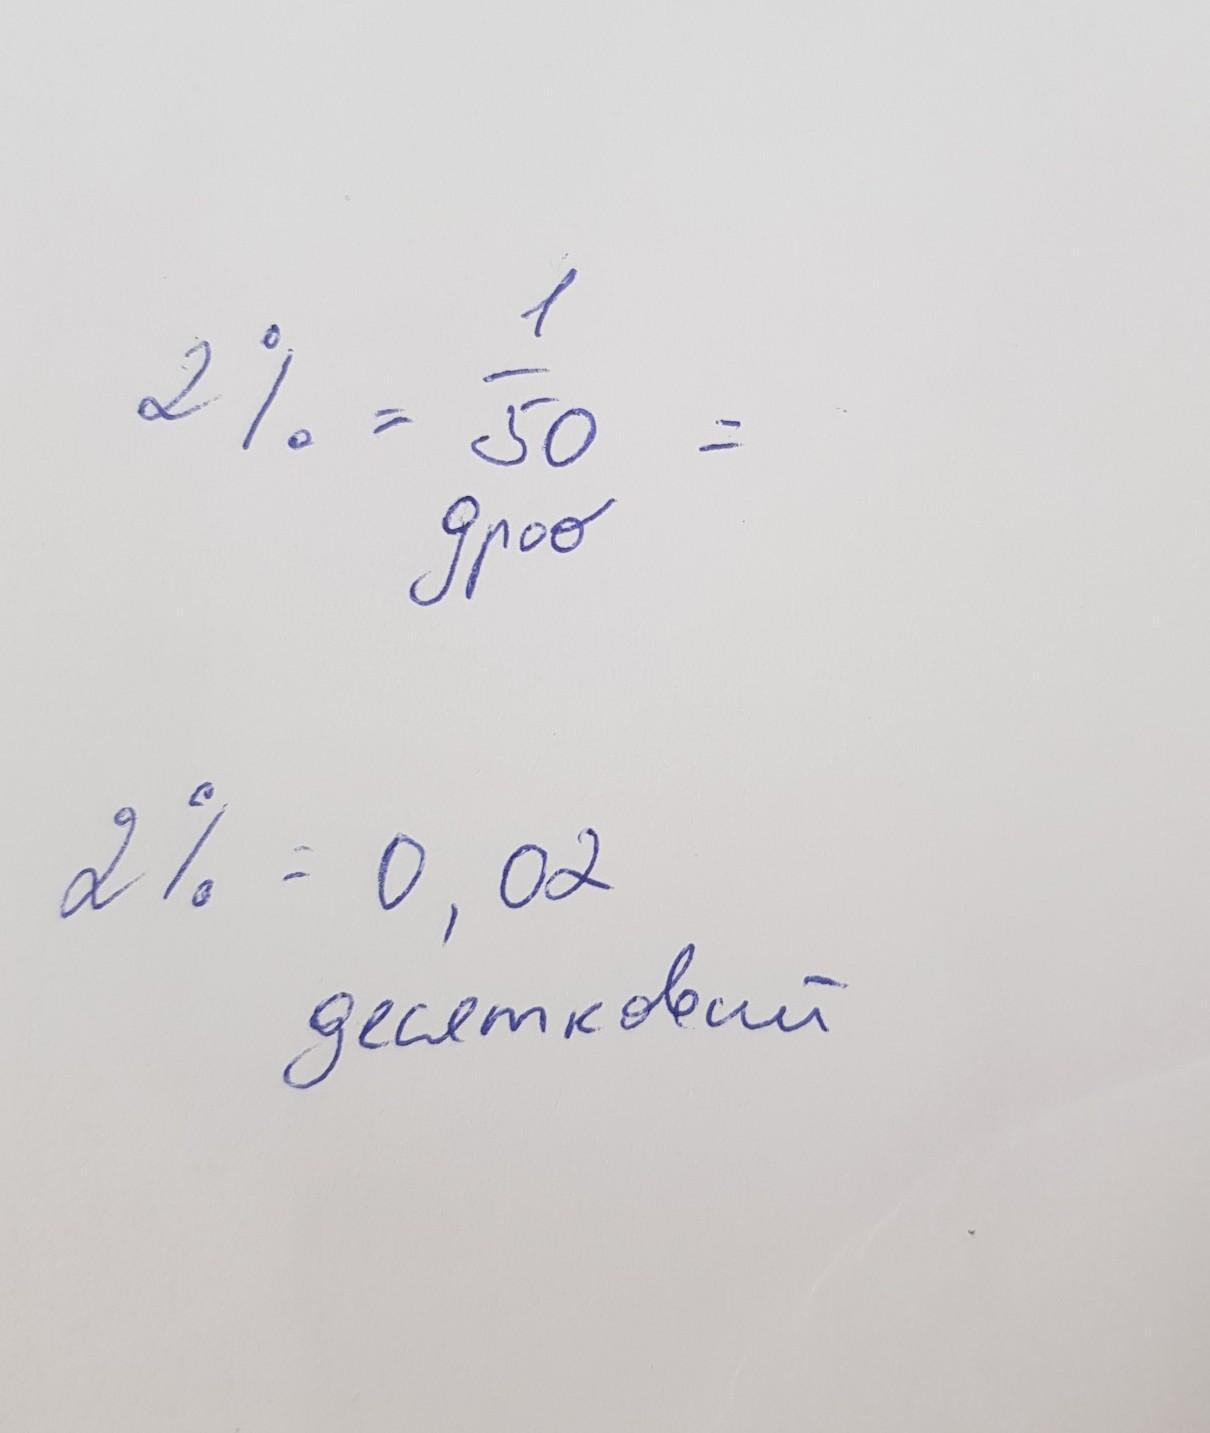 2% = 1/50 =
дроб
2% = 0,02
десятковий